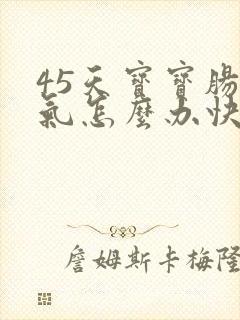 45天寶寶腸
氣怎麼办快
詹姆斯卡梅隆